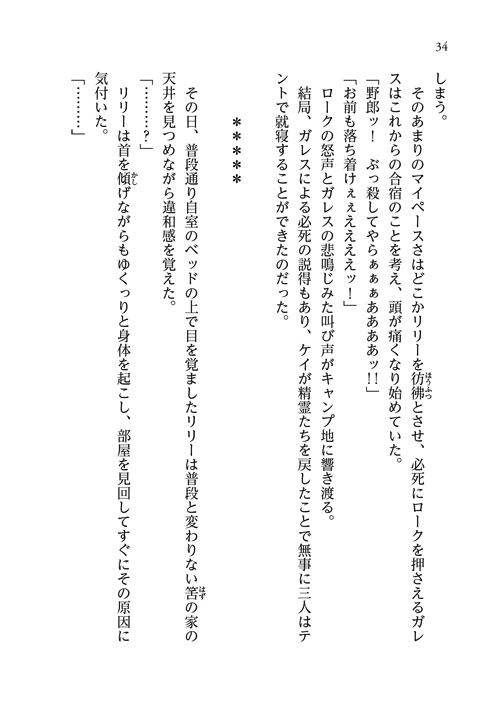 34
しまう。
　そのあまりのマイペースさはどこかリリーを彷彿とさせ、必死にロークを押さえるガレ
スはこれからの合宿のことを考え、頭が痛くなり始めていた。
「野郎ッ！　ぶっ殺してやらぁぁぁああああッ!!」
「お前も落ち着けぇぇええええッ！」
　ロークの怒声とガレスの悲鳴じみた叫び声がキャンプ地に響き渡る。
　結局、ガレスによる必死の説得もあり、ケイが精霊たちを戻したことで無事に三人はテ
ントで就寝することができたのだった。
＊＊＊＊＊
　その日、普段通り自室のベッドの上で目を覚ましたリリーは普段と変わりない筈の家の
天井を見つめながら違和感を覚えた。
「………？」
　リリーは首を傾げながらもゆっくりと身体を起こし、部屋を見回してすぐにその原因に
気付いた。
「………」